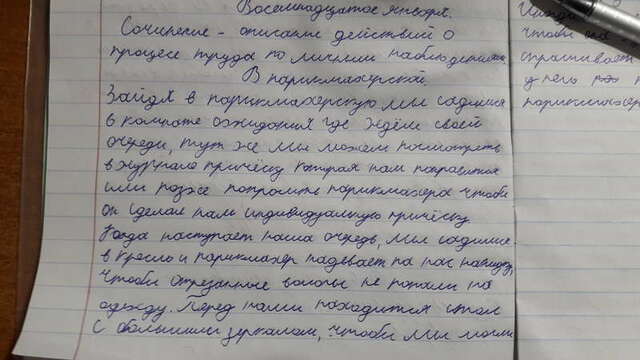 Восемнадцатое января.
Сочинение - описание действий о
процессе труда по личным наблюдениям
В парикмахерской.
Зайдя в парикмахерскую мы садимся
в комнате ожидания где ждём своей
очереди, тут же мы можем посмотреть
в журнале причёску которая нам нравится
или позже попросить парикмахера чтобы
он сделал нам индивидуальную причёску
Когда наступает наша очередь, мы садимся
в кресло и парикмахер надевает на нас накидку
чтобы отрезанные волосы не попали на
одежду. Перед нами находится стол
с большим зеркалом, чтобы мы могли
чтобы
спрашивает